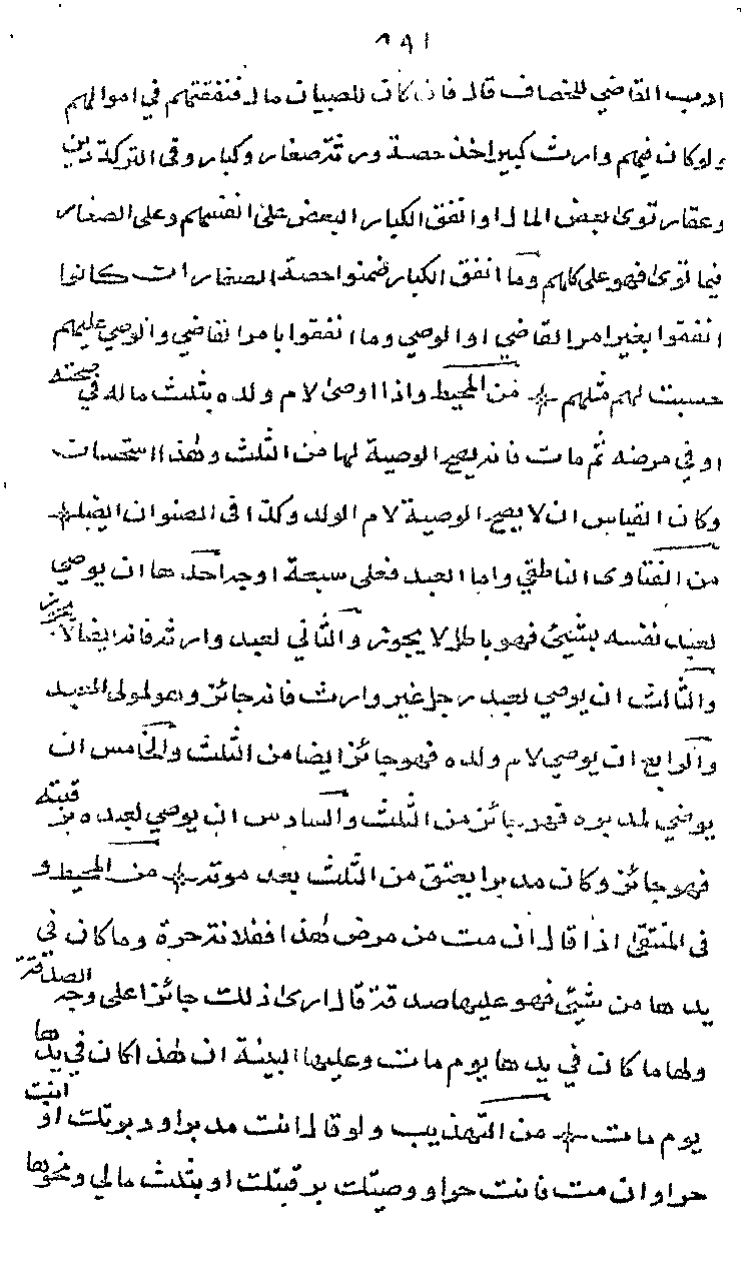 ٨٩١
ادب القاضي للخصاف قال فان كان للصبيان مال فنفقتهم في اموالهم
ولو كان فيهم وارث كبير اخذ حصة ورثته صغار وكبار وفى التركة دين
وعقار توى بعض المال او انفق الكبار البعض على انفسهم وعلى الصغار
فيما توى فهو على كلهم وما انفق الكبار ضمنوا حصة الصغار ان كانوا
انفقوا بغير امر القاضي او الوصي وما انفقوا بامر القاضي والوصي عليهم
حسبت لهم مثلهم من المحيط واذا اوصى لام ولده بثلث ماله في صحته
او في مرضه ثم مات فانه يصح الوصية لها من الثلث وهذا استحسان
وكان القياس ان لا يصح الوصية لام الولد وكذا فى الصنوان ايضا
من الفتاوى الناطقي واما العبد فعلى سبعة اوجه احدها ان يوصي
لعبد نفسه بشيئ فهو باطل لا يجوز والثاني لعبد وارثه فانه ايضا لا يجوز
والثالث ان يوصي لعبد رجل غير وارث فانه جائز وهو لمولى العبد
والرابع ان يوصي لام ولده فهو جائز ايضا من الثلث والخامس ان
يوصي لمدبره فهو جائز من الثلث والسادس ان يوصي لعبده برقبته
فهو جائز وكان مدبرا يعتق من الثلث بعد موته من المحيط و
فى المنتقى اذا قال ان مت من مرض هذا ففلانة حرة وما كان في
يدها من شيئ فهو عليها صدقة قال ارى ذلك جائزا على وجه الصدقة
ولها ما كان في يدها يوم مات وعليها البينة ان هذا كان في يدها
يوم مات من التهذيب ولو قال انت مدبر او دبرتك او انت
حر او ان مت فانت حر او وصيتك برقبتك او بثلث مالي ونحوها